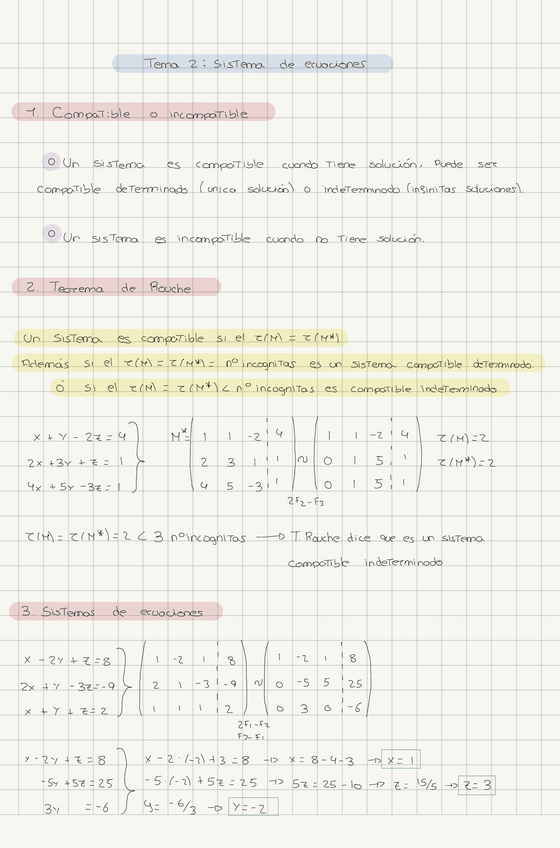 Tema 2: Sistema de ecuaciones
1. Compatible o incompatible
o Un sistema es compatible cuando tiene solución, puede ser
compatible determinado (unica solución) o indeterminado (infinitas soluciones).
o Un sistema es incompatible cuando no tiene solución.
2. Teorema de Rouche
Un sistema es compatible si el r(M) = r(M*)
Además si el r(M) = r(M*) = nº incognitas es un sistema compatible determinado.
Ó si el r(M) = r(M*) < nº incognitas es compatible indeterminado
x + y - 2z = 4 } M* = ( 1 1 -2 ¦ 4 ) ~ ( 1 1 -2 ¦ 4 ) r(M)=2
2x + 3y + z = 1 ( 2 3 1 ¦ 1 ) ( 0 1 5 ¦ 1 ) r(M*)=2
4x + 5y - 3z = 1 ( 4 5 -3 ¦ 1 ) ( 0 1 5 ¦ 1 )
2F2-F3
r(M) = r(M*) = 2 < 3 nº incognitas → T. Rouche dice que es un sistema
compatible indeterminado
3. Sistemas de ecuaciones
x - 2y + z = 8 } ( 1 -2 1 ¦ 8 ) ~ ( 1 -2 1 ¦ 8 )
2x + y - 3z = -9 ( 2 1 -3 ¦ -9 ) ( 0 -5 5 ¦ 25 )
x + y + z = 2 ( 1 1 1 ¦ 2 ) ( 0 3 0 ¦ -6 )
2F1-F2
F3-F1
x - 2y + z = 8 } x - 2·(-2) + 3 = 8 → x = 8-4-3 → x = 1
-5y + 5z = 25 -5·(-2) + 5z = 25 → 5z = 25-10 → z = 15/5 → z = 3
3y = -6 y = -6/3 → y = -2